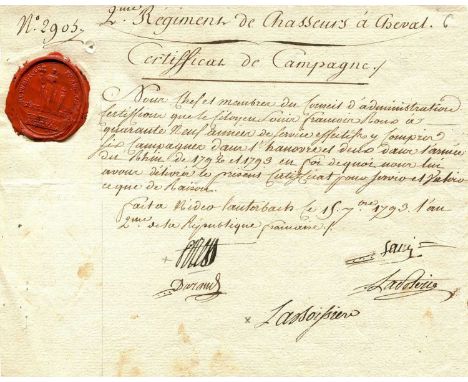 N.° 2905.
2.me Régiment de Chasseurs à Cheval. 6
Certifficat de Campagne./
Nous Chef et membres du Conseil d'administration
Certiffions que le Citoyen Louis François Roux a
quarante Neuf année de service effectifs y Compris
six Campagnes dans l'hanovre et deux dans l'armée
du Rhin de 1792 et 1793 en foi de quoi nous lui
avons délivré le présent Certificat pour servir et valoir
ce que de Raison.
fait a Nider Lauterbach le 15 7.bre 1793. l'an
2.me de la République française./
Durand
Lavoissiere